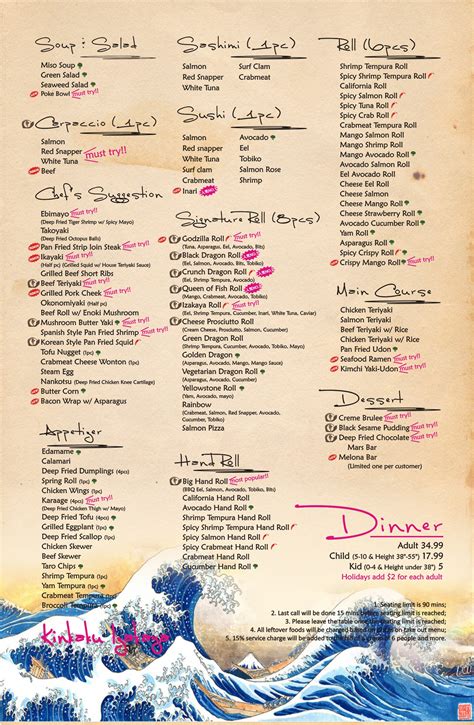 Soup : Salad
Miso Soup
Green Salad
Seaweed Salad
Poke Bowl must try!!
Carpaccio (1pc)
Salmon
Red Snapper must try!!
White Tuna
Beef
Chef's Suggestion
Ebimayo must try!!
(Deep Fried Tiger Shrimp w/ Spicy Mayo)
Takoyaki
(Deep Fried Octopus Balls)
Pan Fried Strip loin Steak must try!!
Ikayaki must try!!
(Half pc) (Grilled Squid w/ House Teriyaki Sauce)
Grilled Beef Short Ribs
Beef Teriyaki must try!!
Grilled Pork Cheek must try!!
Okonomiyaki (Half pc)
Beef Roll w/ Enoki Mushroom
Mushroom Butter Yaki must try!!
Spanish Style Pan Fried Shrimp must try!!
Korean Style Pan Fried Squid
Tofu Nugget (1pc)
Crabmeat Cheese Wonton (1pc)
Steam Egg
Nankotsu (Deep Fried Chicken Knee Cartilage)
Butter Corn
Bacon Wrap w/ Asparagus
Appetizer
Edamame
Calamari
Deep Fried Dumplings (4pcs)
Spring Roll (1pc)
Chicken Wings (1pc)
Karaage (4pcs) must try!!
Deep Fried Oyster (1pc)
Deep Fried Tofu (2pcs)
Grilled Eggplant (1pc)
Deep Fried Scallop (1pc)
Chicken Skewer
Beef Skewer
Taro Chips
Shrimp Tempura (1pc)
Yam Tempura (1pc)
Crabmeat Tempura (1pc)
Broccoli Tempura (1pc)
Kinkaku Izakaya
Sashimi (1pc)
Salmon Surf Clam
Red Snapper Crabmeat
White Tuna
Sushi (1pc)
Salmon Avocado
Red Snapper Eel
White Tuna Tobiko
Surf clam Salmon Rose
Crabmeat Shrimp
Inari
Signature Roll (8pcs)
Godzilla Roll must try!!
(Tuna, Asparagus, Eel, Avocado, Bits)
Black Dragon Roll
(Eel, Salmon, Avocado, Tobiko, Bits)
Crunch Dragon Roll
(Shrimp Tempura, Avocado, Bits)
Queen of Fish Roll
(Mango, Crabmeat, Avocado, Tobiko)
Izakaya Roll must try!!
(Eel, Shrimp Tempura, Cucumber, Inari, White Tuna, Caviar)
Cheese Prosciutto Roll
(Cream Cheese, Prosciutto, Salmon, Cucumber)
Green Dragon Roll
(Shrimp Tempura, Cucumber, Avocado, Tobiko, Bits)
Golden Dragon
(Avocado, Asparagus, Mango, Mango Sauce)
Vegetarian Dragon Roll
(Avocado, Asparagus, Cucumber)
Yellowstone Roll
(Yam, Avocado, mayo)
Rainbow
(Crabmeat, Salmon, Red Snapper, Avocado,
Cucumber, Tobiko)
Salmon Pizza
Hand Roll
Big Hand Roll most popular!!
(BBQ Eel, Salmon, Avocado, Tobiko, Bits)
California Hand Roll
Avocado Hand Roll
Shrimp Tempura Hand Roll
Spicy Shrimp Tempura Hand Roll
Spicy Salmon Hand Roll
Spicy Crabmeat Hand Roll
Crabmeat Hand Roll
Cucumber Hand Roll
Roll (6pcs)
Shrimp Tempura Roll
Spicy Shrimp Tempura Roll
California Roll
Spicy Salmon Roll
Spicy Tuna Roll
Spicy Crab Roll
Crabmeat Tempura Roll
Mango Salmon Roll
Mango Shrimp Roll
Mango Avocado Roll
Salmon Roll
Cheese Eel Roll
Cheese Salmon Roll
Cheese Strawberry Roll
Avocado Cucumber Roll
Yam Roll
Asparagus Roll
Spicy Crispy Roll
Crispy Mango Roll must try!!
Main Course
Chicken Teriyaki
Salmon Teriyaki
Beef Teriyaki w/ Rice
Chicken Teriyaki w/ Rice
Pan Fried Udon
Seafood Ramen must try!!
Kimchi Yaki-Udon must try!!
Dessert
Creme Brulee must try!!
Black Sesame Pudding must try!!
Deep Fried Chocolate must try!!
Mars Bar
Melona Bar
(Limited one per customer)
Dinner
Adult 34.99
Child (5-10 & Height 38"-55") 17.99
Kid (0-4 & Height under 38") 5
Holidays add $2 for each adult
1. Seating limit is 90 mins;
2. Last call will be done 15 mins before seating limit is reached;
3. Please leave the table once the seating limit is reached;
4. All leftover foods will be charged based on prices on take out menu;
5. 15% service charge will be added to the bill of a group of 6 people and more.